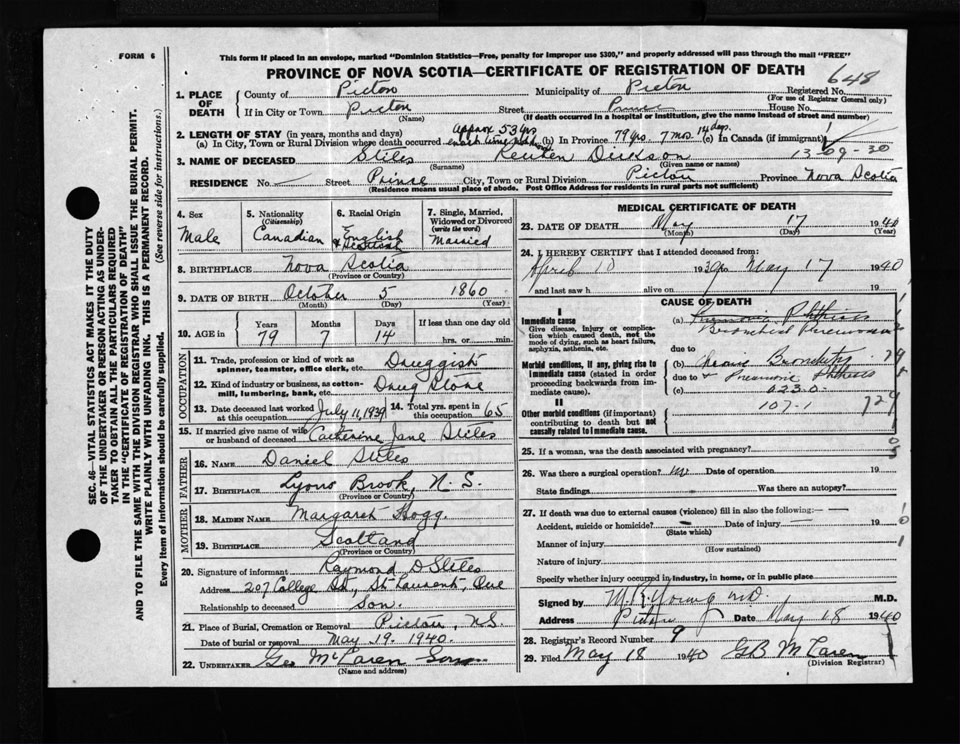 FORM 6
This form if placed in an envelope, marked "Dominion Statistics—Free, penalty for improper use $300," and properly addressed will pass through the mail "FREE"
PROVINCE OF NOVA SCOTIA—CERTIFICATE OF REGISTRATION OF DEATH
648
1. PLACE OF DEATH { County of Pictou Municipality of Pictou Registered No.
(For use of Registrar General only)
If in City or Town Pictou Street Prince House No.
(Name) (If death occurred in a hospital or institution, give the name instead of street and number)
2. LENGTH OF STAY (in years, months and days) approx 53 yrs
(a) In City, Town or Rural Division where death occurred exact time (b) In Province 79 yrs. 7 mos. 14 days. (c) In Canada (if immigrant)
3. NAME OF DECEASED Stiles Reuben Dickson 13-09-30
(Surname) (Given name or names)
RESIDENCE No. — Street Prince City, Town or Rural Division Pictou Province Nova Scotia
(Residence means usual place of abode. Post Office Address for residents in rural parts not sufficient)
4. Sex Male
5. Nationality (Citizenship) Canadian
6. Racial Origin English & Scottish
7. Single, Married, Widowed or Divorced (write the word) Married
8. BIRTHPLACE Nova Scotia
(Province or Country)
9. DATE OF BIRTH October 5 1860
(Month) (Day) (Year)
10. AGE in Years 79 Months 7 Days 14 If less than one day old hrs. or min.
OCCUPATION
11. Trade, profession or kind of work as spinner, teamster, office clerk, etc. Druggist
12. Kind of industry or business, as cotton-mill, lumbering, bank, etc. Drug Store
13. Date deceased last worked at this occupation July 11, 1939 14. Total yrs. spent in this occupation 65
15. If married give name of wife or husband of deceased Catherine Jane Stiles
FATHER
16. NAME Daniel Stiles
17. BIRTHPLACE Lyons Brook, N.S.
(Province or Country)
MOTHER
18. MAIDEN NAME Margaret Hogg
19. BIRTHPLACE Scotland
(Province or Country)
20. Signature of informant Raymond D Stiles
Address 207 College St., St Laurent, Que
Relationship to deceased Son.
21. Place of Burial, Cremation or Removal Pictou, N.S.
Date of burial or removal May 19. 1940.
22. UNDERTAKER Geo McLaren Son
(Name and address)
MEDICAL CERTIFICATE OF DEATH
23. DATE OF DEATH May 17 1940
(Month) (Day) (Year)
24. I HEREBY CERTIFY that I attended deceased from:
April 10 1939 to May 17 1940
and last saw h alive on 19
CAUSE OF DEATH
I
Immediate cause
Give disease, injury or complication which caused death, not the mode of dying, such as heart failure, asphyxia, asthenia, etc.
(a) Phthisis
Bronchial Pneumonia
due to
Morbid conditions, if any, giving rise to immediate cause (stated in order proceeding backwards from immediate cause)
(b) Chronic Bronchitis
due to & Phthisis
(c) 023-0
107-1
II
Other morbid conditions (if important) contributing to death but not causally related to immediate cause.
25. If a woman, was the death associated with pregnancy?
26. Was there a surgical operation? no Date of operation 19
State findings Was there an autopsy?
27. If death was due to external causes (violence) fill in also the following:
Accident, suicide or homicide? — Date of injury — 19
(State which)
Manner of injury
(How sustained)
Nature of injury
Specify whether injury occurred in industry, in home, or in public place
Signed by M.R. Young M.D. M.D.
Address Pictou Date May 18 1940
28. Registrar's Record Number 9
29. Filed May 18 1940 GB McLaren
(Division Registrar)
SEC. 46—VITAL STATISTICS ACT MAKES IT THE DUTY
OF THE UNDERTAKER OR PERSON ACTING AS UNDER-
TAKER TO OBTAIN ALL THE PARTICULARS REQUIRED
IN THE "CERTIFICATE OF REGISTRATION OF DEATH"
AND TO FILE THE SAME WITH THE DIVISION REGISTRAR WHO SHALL ISSUE THE BURIAL PERMIT.
WRITE PLAINLY WITH UNFADING INK. THIS IS A PERMANENT RECORD.
Every item of information should be carefully supplied. (See reverse side for instructions.)